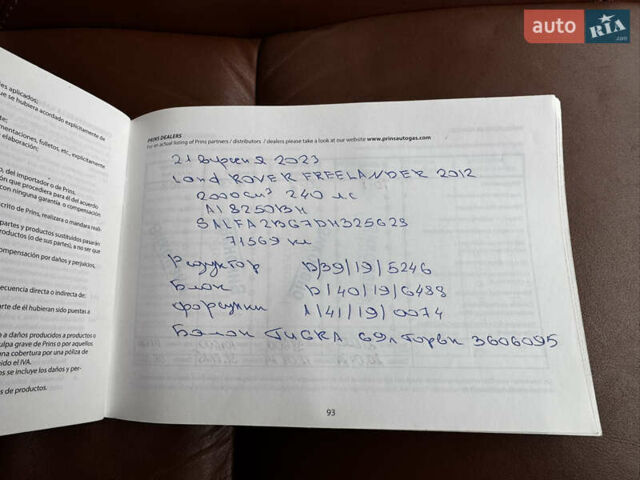 auto RIA.com
es aplicados;
que se hubiera acordado explícitamente de
te:
mentaciones, folletos, etc., explícitamente
elaboración;
o, del importador o de Prins.
ión que procediera para él del acuerdo
con ninguna garantía o compensación
crito de Prins, realizara o mandara reali-
partes y productos sustituidos pasarán
oductos (o de sus partes), a no ser que
ompensación por daños y perjuicios,
ecuencia directa o indirecta de:
arte de él hubieran sido puestas a
a a daños producidos a productos o
ulpa grave de Prins o por aquellos
una cobertura por una póliza de
ido el IVA.
os se incluye los daños y per-
s de productos.
PRINS DEALERS
For an actual listing of Prins partners / distributors / dealers please take a look at our website www.prinsautogas.com
21 вересня 2023
Land ROVER FREELANDER 2012
2000 см³ 240 лс
71569 км
Редуктор D/39/19/5246
Блок D/40/19/6488
Форсунки 1/41/19/0074
Балон 69л Торви 3606095
93